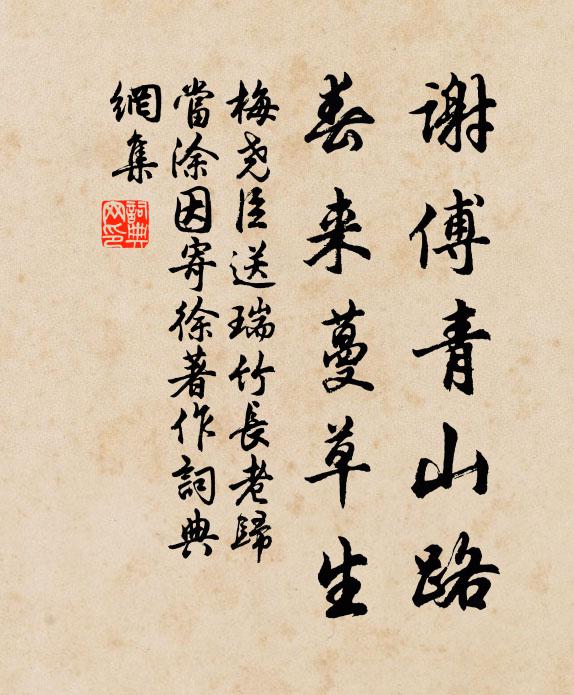 謝傅青山路
春来蔓草生
梅尧臣送瑞竹長老歸
當涂因寄徐著作詞典
網集
詞典
网印